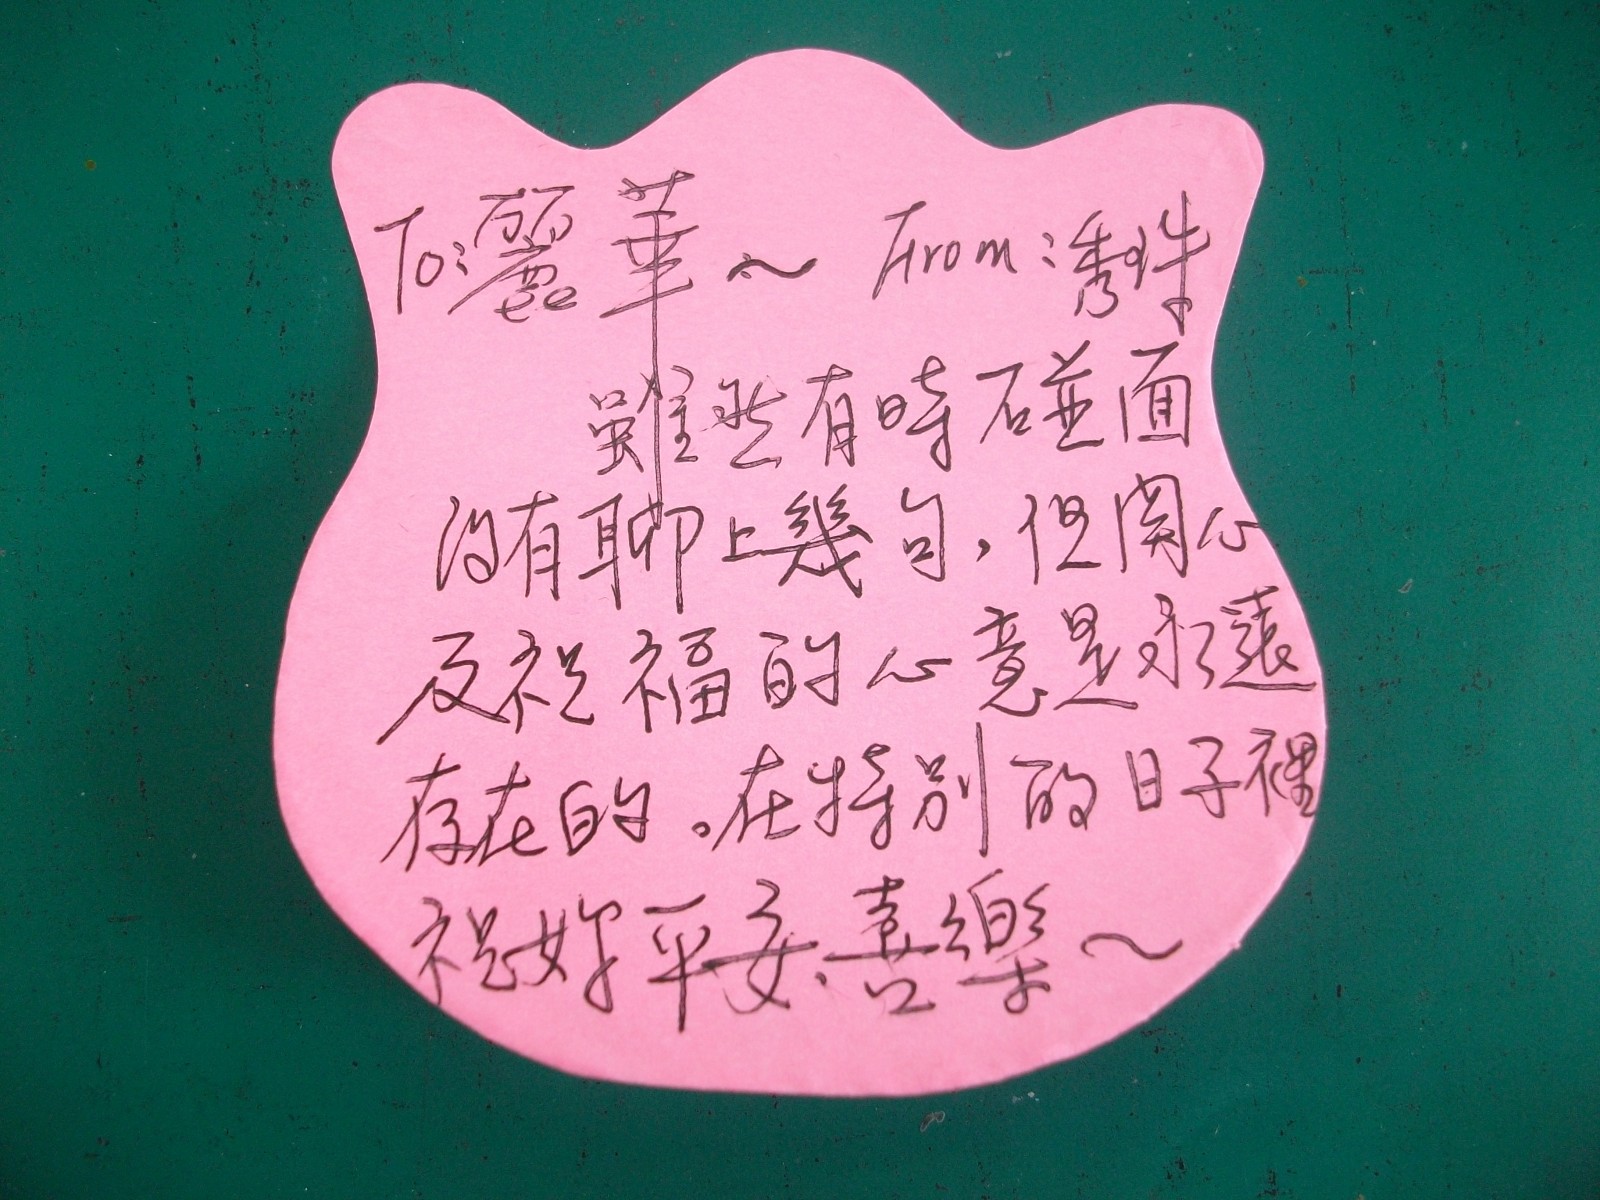 To:麗華~ From:秀珠
雖然有時碰面
沒有聊上幾句,但関心
及祝福的心意是永遠
存在的。在特別的日子裡
祝妳平安、喜樂~